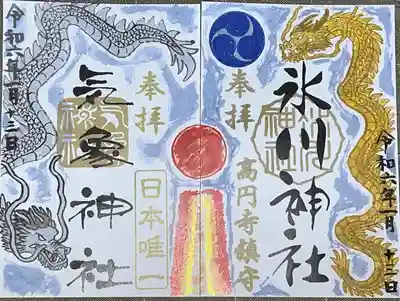 令和六年一月十三日
氷川神社
奉拝
高円寺鎮守
奉拝
気象神社
日本唯一
令和六年一月十三日